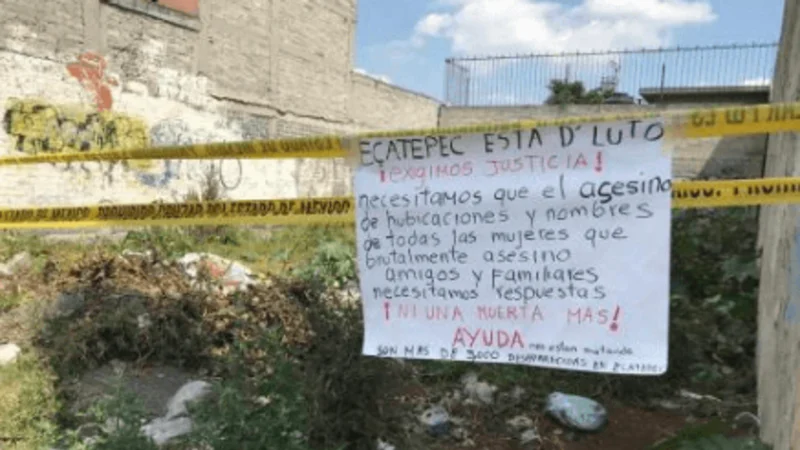 ECATEPEC ESTÁ D' LUTO
¡EXIGIMOS JUSTICIA!
necesitamos que el asesino
de hubicaciones y nombres
de todas las mujeres que
brutalmente asesino
amigos y Familiares
necesitamos respuestas
¡NI UNA MUERTA MAS!
AYUDA nos estan matando
SON MAS DE 3000 DESAPARECIDAS EN ECATEPEC
DE MEXICO